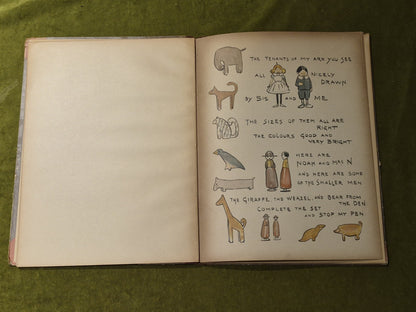 THE TENANTS OF MY ARK YOU SEE
ALL NICELY DRAWN
BY SIS AND ME
THE SIZES OF THEM ALL ARE RIGHT
THE COLOURS GOOD AND VERY BRIGHT
HERE ARE NOAH AND HIS N
AND HERE ARE SOME OF THE SMALLER MEN
THE GIRAFFE, THE WEAZEL, AND BEAR FROM THE DEN
COMPLETE THE SET AND STOP MY PEN